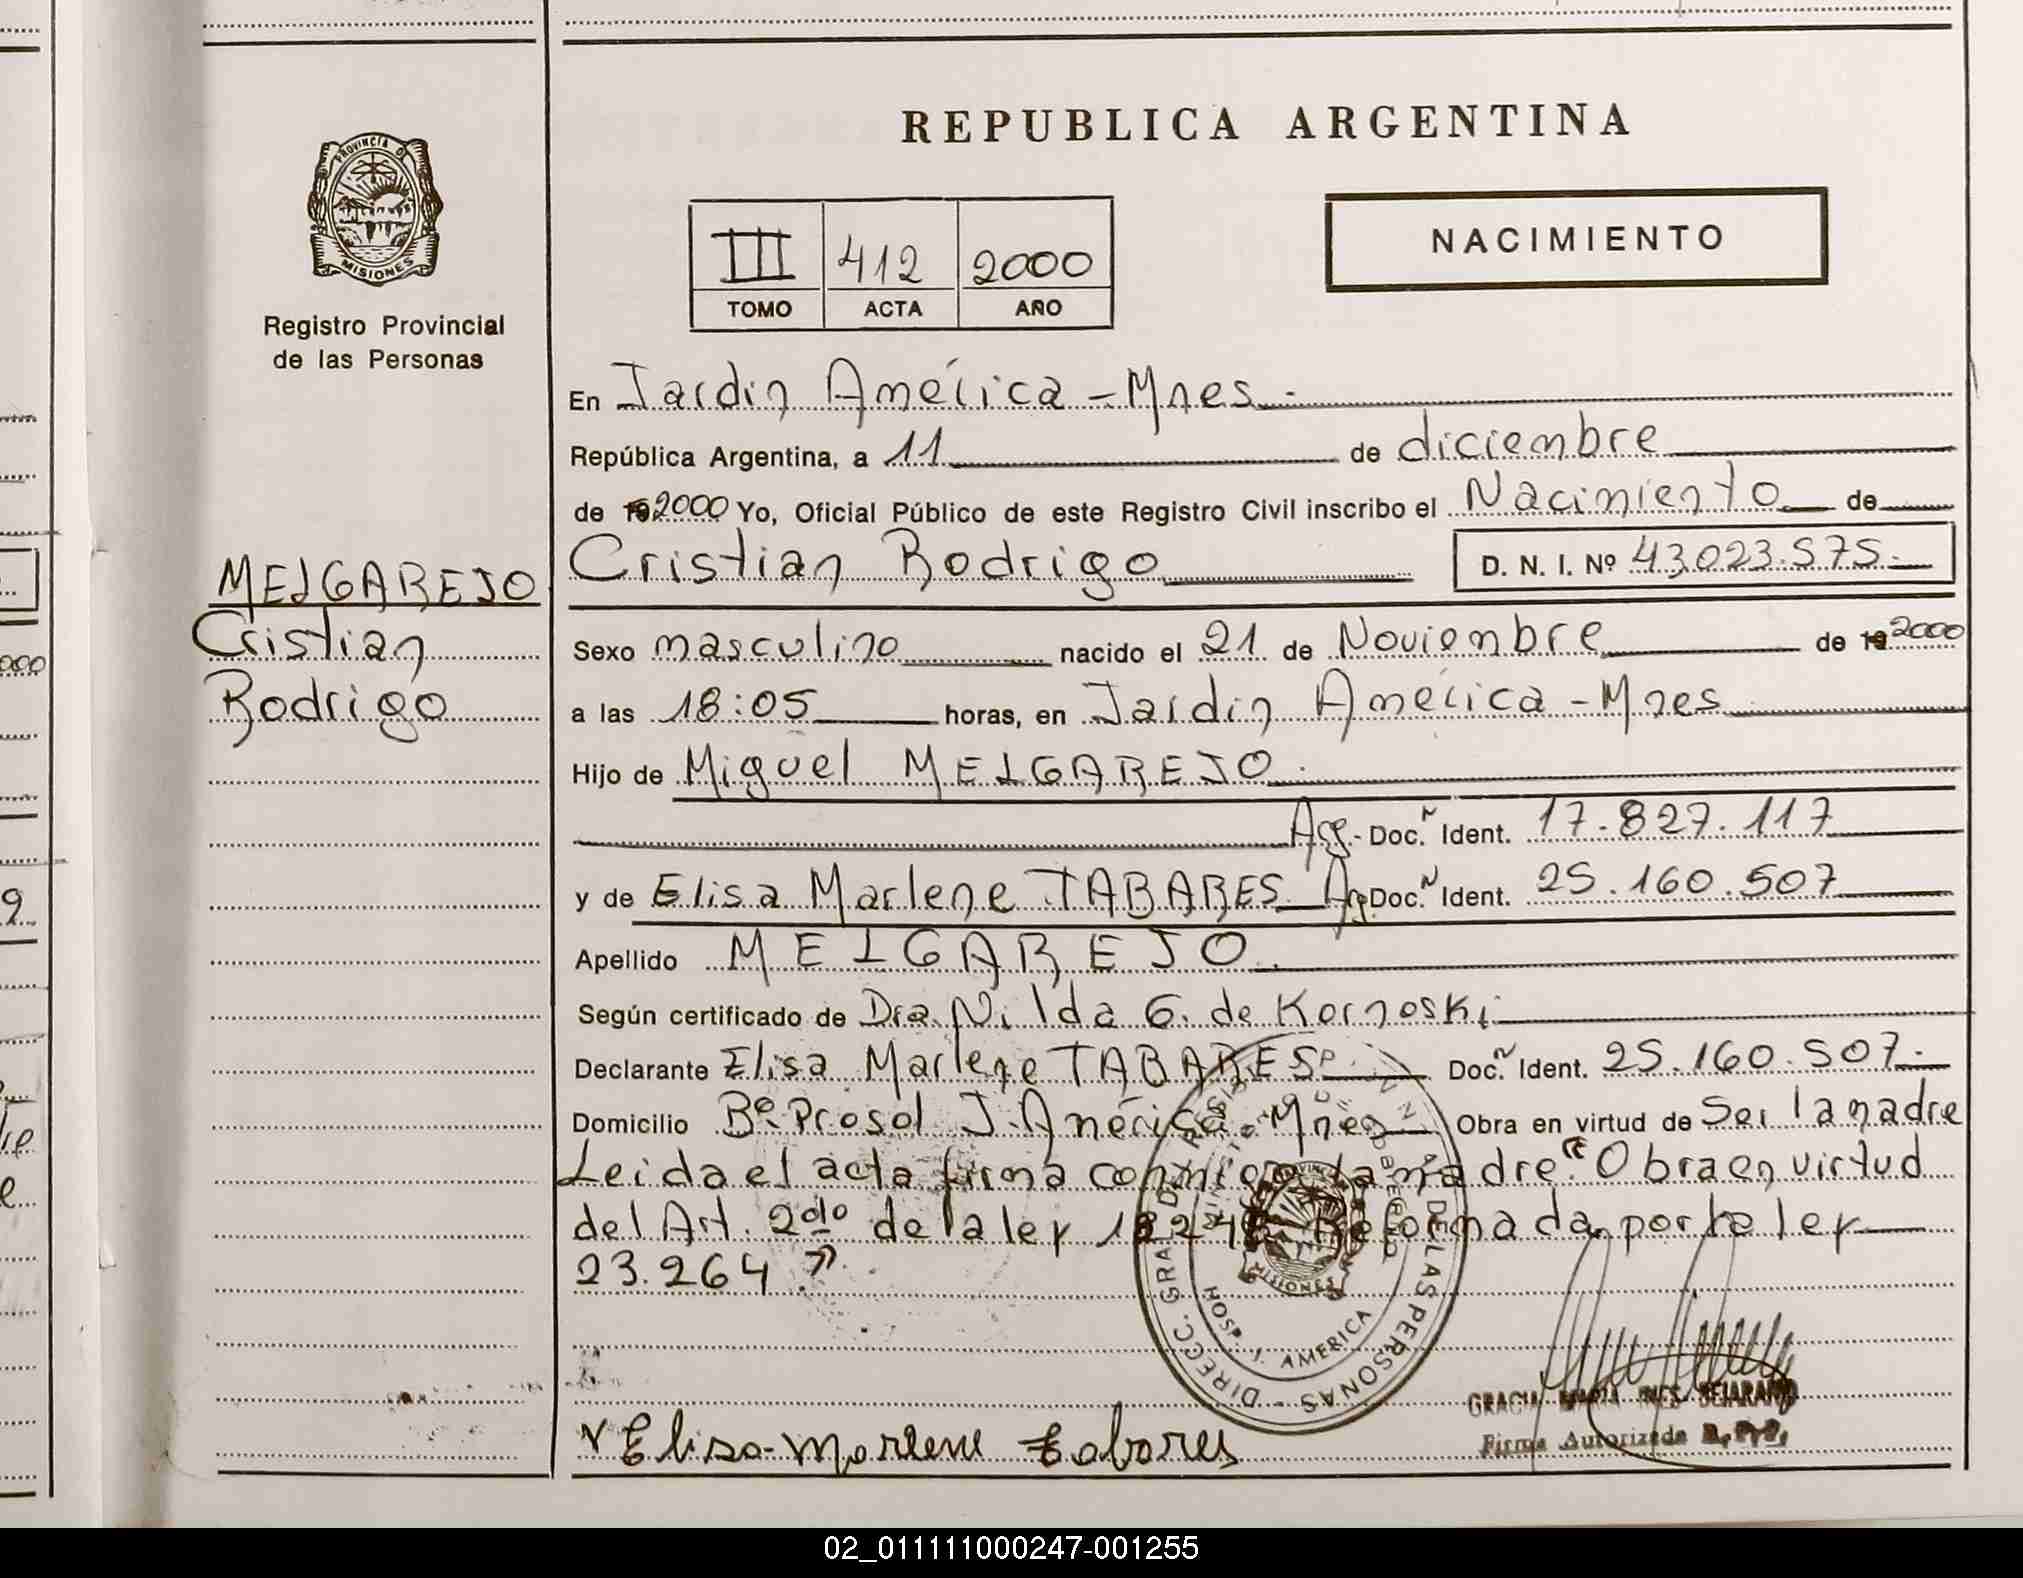 REPUBLICA ARGENTINA
PROVINCIA D
MISIONES
Registro Provincial
de las Personas
III 412 2000
TOMO ACTA AÑO
NACIMIENTO
En Jardin América - Mnes.
República Argentina, a 11 de diciembre
de 19 2000 Yo, Oficial Público de este Registro Civil inscribo el Nacimiento de
Cristian Rodrigo D. N. I. Nº 43.023.575.
MELGAREJO
Cristian
Rodrigo
Sexo masculino nacido el 21 de Noviembre de 19 2000
a las 18:05 horas, en Jardin América - Mnes
Hijo de Miguel MELGAREJO.
Arg. Doc. Ident. 17.827.117
y de Elisa Marlene TABARES Arg. Doc. Ident. 25.160.507
Apellido MELGAREJO.
Según certificado de Dra. Nilda G. de Kornoski
Declarante Elisa Marlene TABARES Doc. Ident. 25.160.507.
Domicilio Bº Prosol J. América Mnes Obra en virtud de Ser la madre
Leida el acta firma conmigo la madre "Obra en virtud
del Art. 2do de la ley 18248 Reformada por la ley
23.264"
DIRECC. GRAL. DE LAS PERSONAS
HOSP. J. AMERICA
MISIONES
Elisa Marlene Tabares
GRACIA MARIA INES BEJARANO
Firma Autorizada R.P.P.
02_011111000247-001255